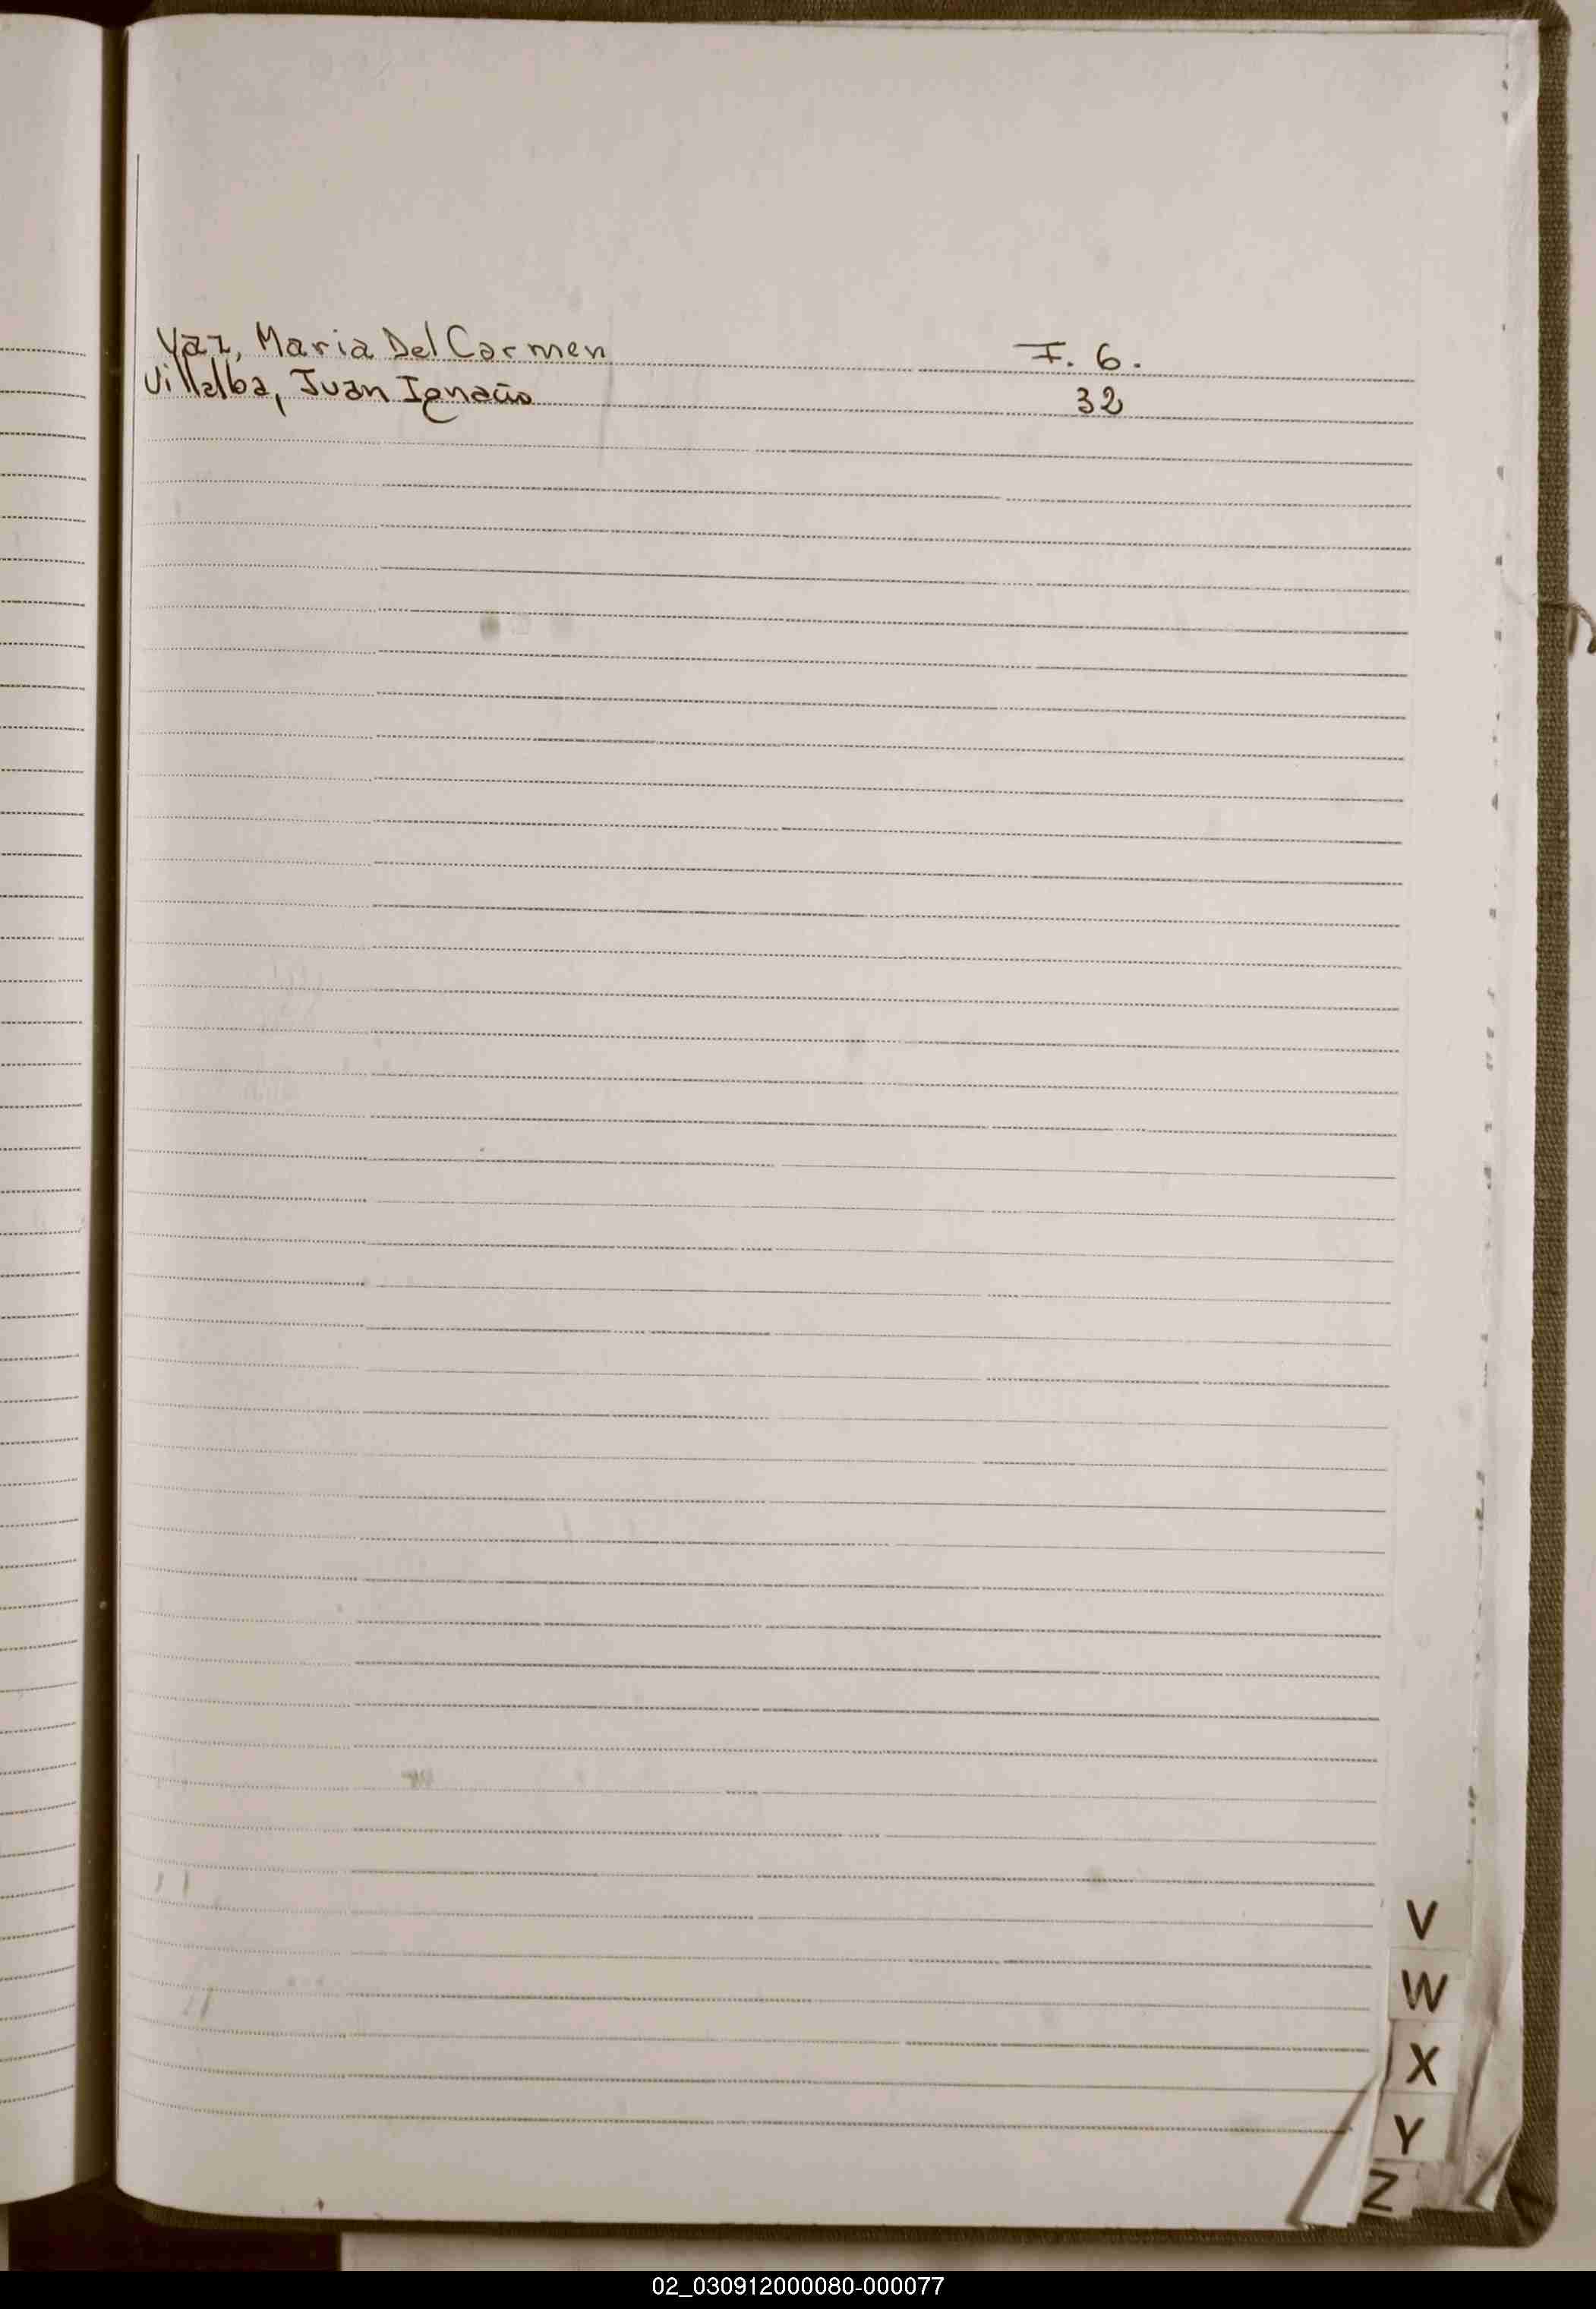 Vaz, Maria Del Carmen I. 6.
Villalba, Juan Ignacio 32
V
W
X
Y
Z
02_030912000080-000077